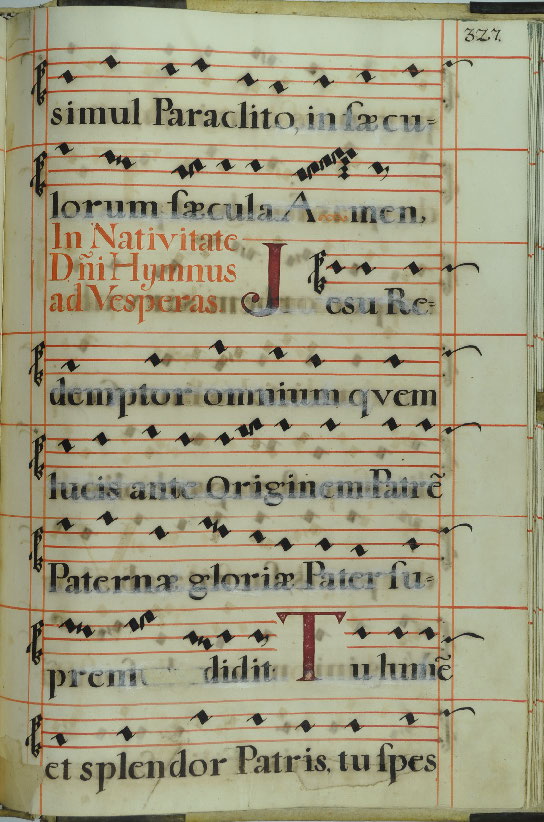 327.
simul Paraclito, in ſæcu-
lorum ſæcula. A men,
In Nativitate
Dñi Hymnus
ad Vesperas
Jesu Re-
demptor omnium qvem
lucis ante Originem Patrẽ
Paternæ gloriæ Pater ſu-
didit Tu lumẽ
et splendor Patris, tu ſpes